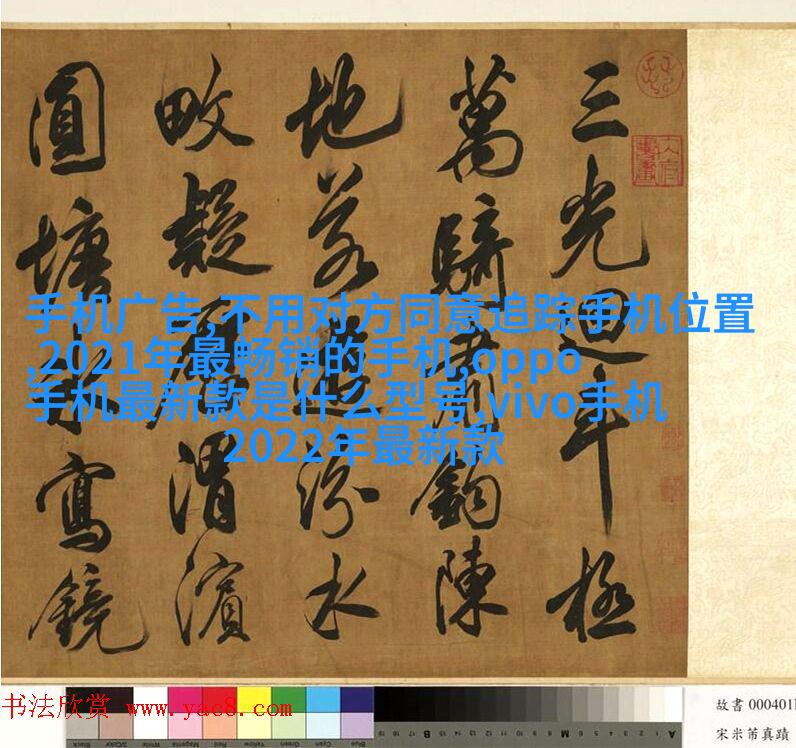 三光迴斗極
萬騎肅鉤陳
地若遊汾水
畋疑歷渭濱
圓塘冰寫鏡
手机广告,不用对方同意追踪手机位置
,2021年最畅销的手机,oppo
手机最新款是什么型号,vivo手机
2022年最新款
书法欣赏 www.yac8.com
故書 000401
宋米芾真蹟